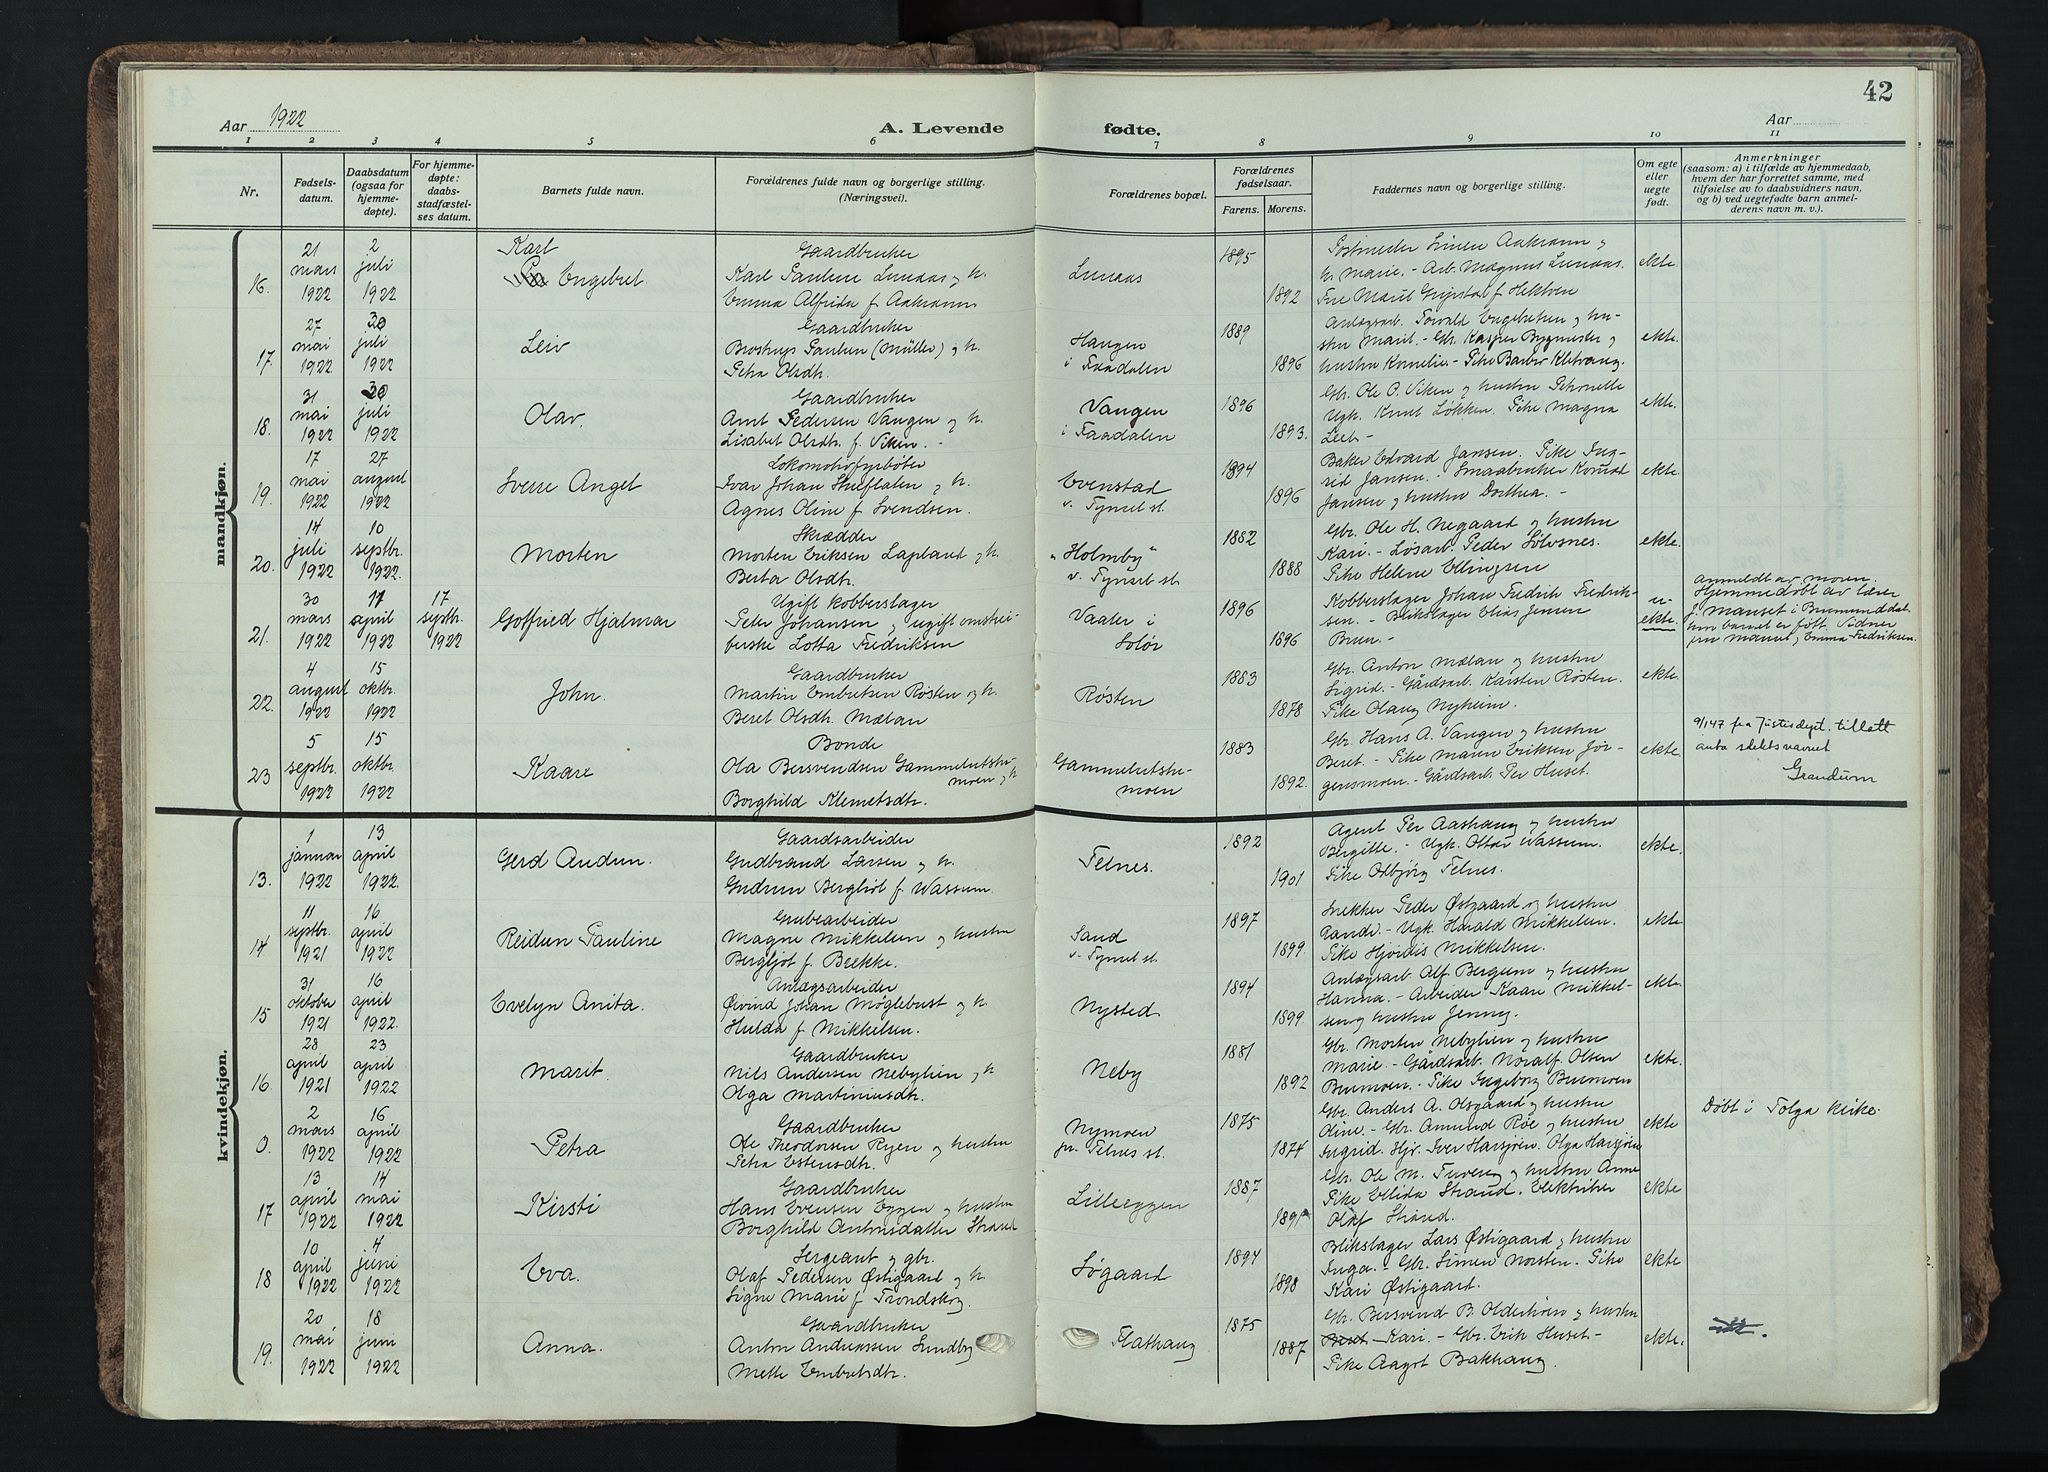 42
Aar 1922
A. Levende fødte.
Aar
1 2 3 4 5 6 7 8 9 10 11
Nr.
Fødsels-
datum.
Daabsdatum
(ogsaa for
hjemme-
døpte).
For hjemme-
døpte:
daabs-
stadfæstel-
ses datum.
Barnets fulde navn.
Forældrenes fulde navn og borgerlige stilling.
(Næringsvei).
Forældrenes bopæl.
Forældrenes
fødselsaar.
Farens. Morens.
Faddernes navn og borgerlige stilling.
Om egte
eller
uegte
født.
Anmerkninger
(saasom: a) i tilfælde av hjemmedaab,
hvem der har forrettet samme, med
tilføielse av to daabsvidners navn,
og b) ved uegtefødte barn anmel-
derens navn m. v.).
mandkjøn.
16. 21 mars 1922
2 juli 1922
Karl
Engebret
Gaardbruker
Karl Paulsen Lunaas og h.
Emma Alfrida f. Aakrann
Lunaas
1895
1892
Postmester Simen Aakrann og
h. Marie. - Arb. Magnus Lunaas.
Fru Marit Grytstal f. Hektoen
ekte.
17. 27 mai 1922
30 juli 1922
Leiv
Gaardbruker
Brostrup Paulsen (Müller) og h.
Petra Olsdtr.
Haugen
i Faadalen
1889
1896
Anlægsarb. Torvald Engebretsen og hu-
stru Marit. - Gbr. Kasper Bygmester og
hustru Kornelie. - Pike Barbro Kletvang.
ekte.
18. 31 mai 1922
30 juli 1922
Olav.
Gaardbruker
Arnt Pedersen Vangen og h.
Lisabet Olsdtr. f. Viken. -
Vangen
i Faadalen
1896
1893.
Gbr. Ole O. Viken og hustru Petronelle
Ugk. Knut Løkken. Pike Magna
Lieb -
ekte.
19. 17 mai 1922
27 august 1922
Sverre Angel
Lokomotivfyrbøter
Ivar Johan Stueflaten og h.
Agnes Oline f. Svendsen.
Evenstad
v. Tynset st.
1894
1896
Baker Edvard Jansen. Pike Ing-
rid Jansen. - Smaabruker Konrad
Jansen og hustru Dorthea. -
ekte.
20. 14 juli 1922
10 septbr. 1922.
Morten
Skrædder
Morten Eriksen Lapland og h.
Berta Olsdtr.
"Holmby"
v. Tynset st.
1882
1888
Gbr. Ole H. Negaard og hustru
Kari. - Løsarb. Peder Sølvsnes.
Pike Helene Ellingsen
ekte.
21. 30 mars 1922
17 april 1922
17 septbr. 1922
Gotfried Hjalmar
Ugift kobberslager
Peter Johansen og ugift omstrei-
ferske Lotta Fredriksen
Vaaler i
Solør
1896
1896
Kobberslager Johan Fredrik Fredrik-
sen. - Blikslager Elias Jensen
Bruun. -
u-
ekte.
Anmeldt av moren.
Hjemmedøbt av lærer
J. Mauset i Brumunddal
hvor barnet er født. Vidner
fru Mauset og Emma Fredriksen.
22. 4 august 1922
15 oktbr. 1922
John.
Gaardbruker
Martin Embretsen Røsten og h.
Beret Olsdtr. Mælan
Røsten
1883
1878
Gbr. Anton Mælan og hustru
Sigrid. - Gårdsarb. Karsten Røsten.
Pike Olaug Nyheim.
ekte.
23 5 septbr. 1922
15 oktbr. 1922
Kaare
Bonde
Ola Bersvendsen Gammelutstu-
moen og h
Borghild Klemetsdtr.
Gammelutstu-
moen
1883
1892.
Gbr. Hans A. Vangen og hustru
Beret - Pike Maren Eriksen Jør-
gensmoen. - Gårdsarb. Per Huset.
ekte.
9/1 47 fra Justisdept. tillatt
anta slektsnavnet
Grandum
kvindekjøn.
13. 1 januar 1922
13 april 1922.
Gerd Audun.
Gaardsarbeider
Gudbrand Larsen og h.
Gudrun Bergliot f. Wassum.
Telnes.
1892
1901
Agent Per Aashaug og hustru
Bergitte. - Ugk. Oltar Wassum.
Pike Odbjørg Telnes.
ekte.
14 11 septbr. 1921
16 april 1922
Reidun Pauline
Grubearbeider
Magne Mikkelsen og hustru
Bergljot f. Brekke.
Sand
v. Tynset st.
1897
1899
Snekker Peder Østgaard og hustru
Randi. - Ugk. Harald Mikkelsen.
Pike Hjørdis Mikkelsen.
ekte
15 31 oktober 1921
16 april 1922.
Evelyn Anita.
Anlægsarbeider
Øivind Johan Møglebust og h.
Hulda f. Mikkelsen.
Nysted.
1894
1899
Anlægsarb. Alf Bergum og hustru
Hanna. - Arbeider Kaare Mikkel-
sen og hustru Jenny.
ekte.
16 28 april 1921
23 april 1922
Marit.
Gaardbruker
Nils Andersen Nebylien og h
Olga Martiniusdtr.
Neby
1881
1892
Gbr. Morten Nebylien og hustru
Marie. - Gårdsarb. Noralf Olsen
Brumoen. - Pike Ingeborg Brumoen
ekte.
0. 2 mars 1922
16 april 1922
Petra
Gaardbruker
Ole Theodorsen Ryen og hustru
Petra Estensdtr.
Nymoen
pr. Telnes st.
1875
1874
Gbr. Anders A. Olsgaard og hustru
Oline. - Gbr. Amund Røe og hustru
Ingrid. Hjr. Iver Harsjøen. Olga Harsjøen
ekte
Døbt i Tolga kirke.
17 13 april 1922
14 mai 1922
Kirsti
Gaardbruker
Hans Evensen Eggen og hustru
Borghild Antonsdatter Strand
Lilleeggen
1887
1891
Gbr. Ole M. Tuveng og hustru Anne
Pike Ellida Strand. Elektriker
Olaf Strand.
ekte
18 10 april 1922
4 juni 1922
Eva.
Sergeant og gbr.
Olaf Pedersen Østigaard og h.
Signe Marie f. Trondskog.
Søgaard
1894
1898
Blikslager Lars Østigaard og hustru
Inga. - Gbr. Simen Norsten. Pike
Kari Østigaard.
ekte
19. 20 mai 1922
18 juni 1922
Anna.
Gaardbruker
Anton Andreassen Sundby
Mette Embretsdtr.
Flathaug
1875
1887
Gbr. Bersvend B. Oldertrøen og hustru
Beret Kari. - Gbr. Erik Huset -
Pike Aagot Bakhaug.
ekte.